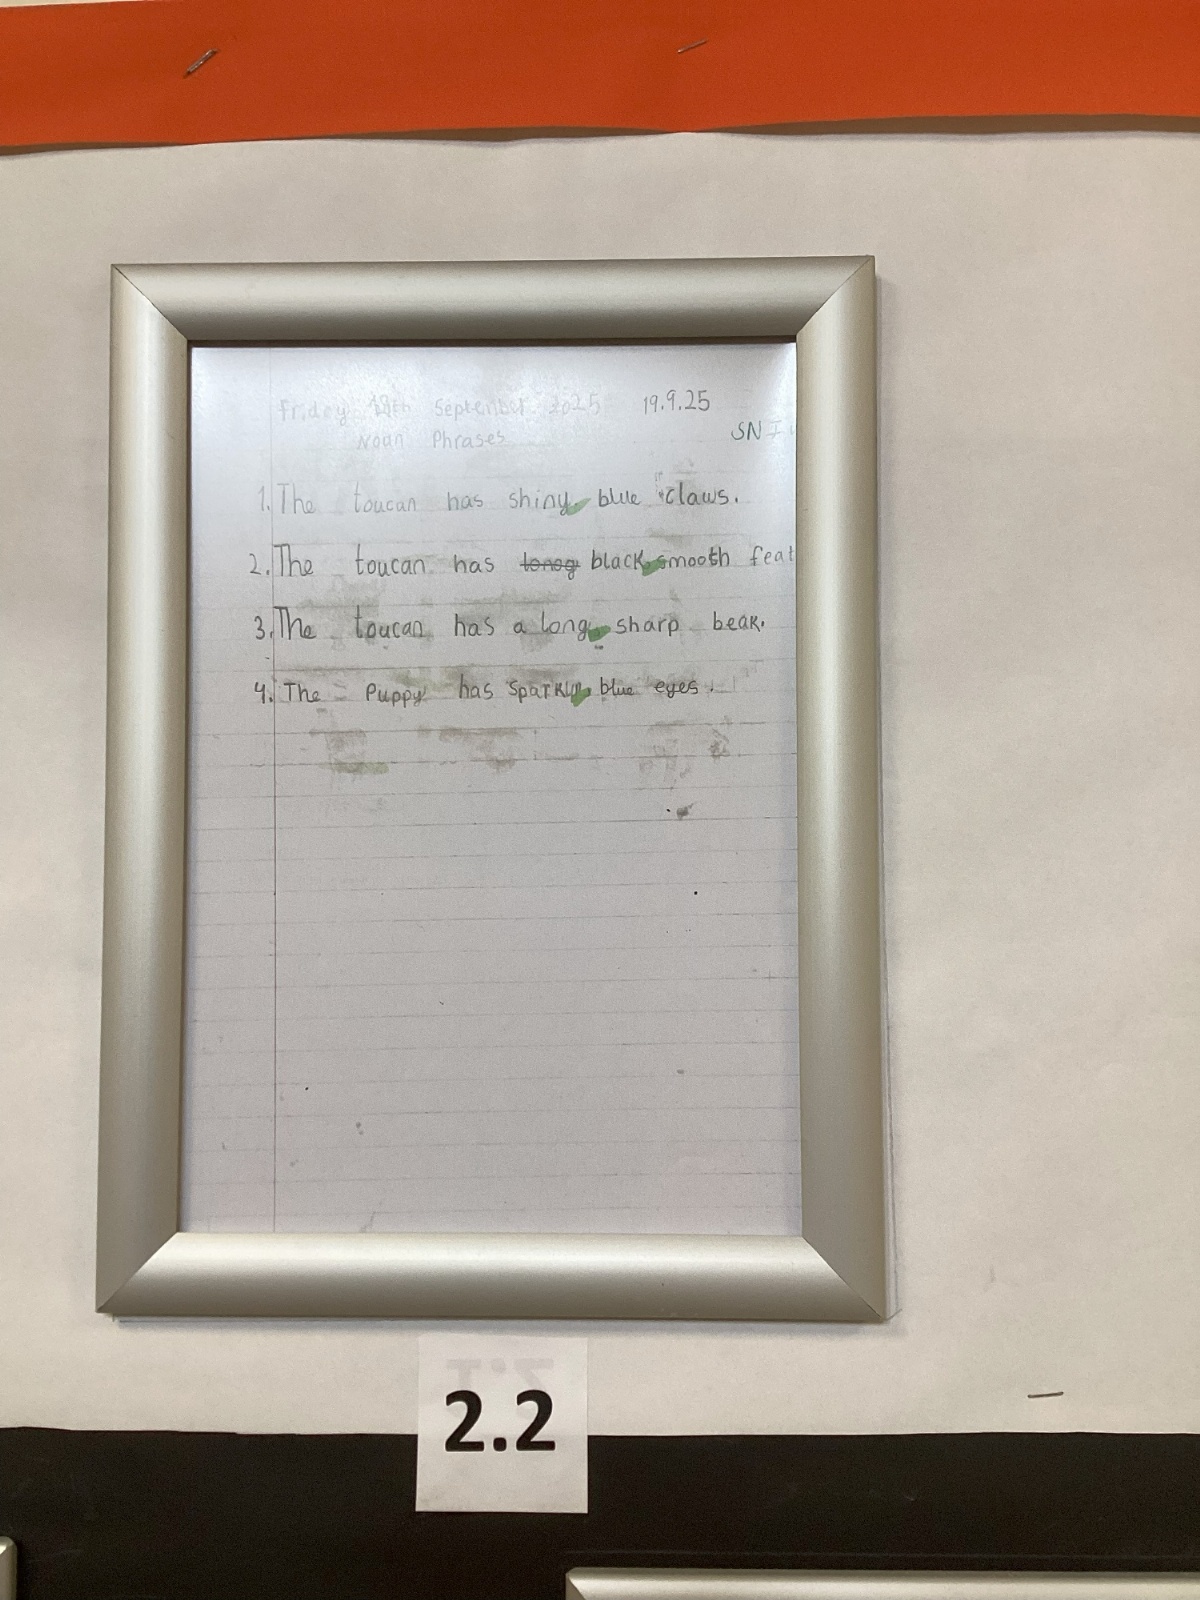 Friday 19th September 2025 19.9.25
Noun Phrases SN I
1. The toucan has shiny, blue claws.
2. The toucan has black, smooth feat
3. The toucan has a long, sharp beak.
4. The Puppy has sparkly, blue eyes.
2.2